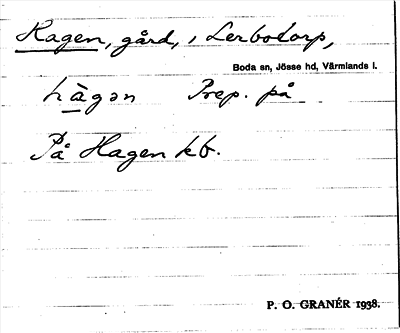 Hagen, gård, i Lerbotorp,
Boda sn, Jösse hd, Värmlands l.
hàgən Prep. på
På Hagen kb.
P. O. GRANÉR 1938.